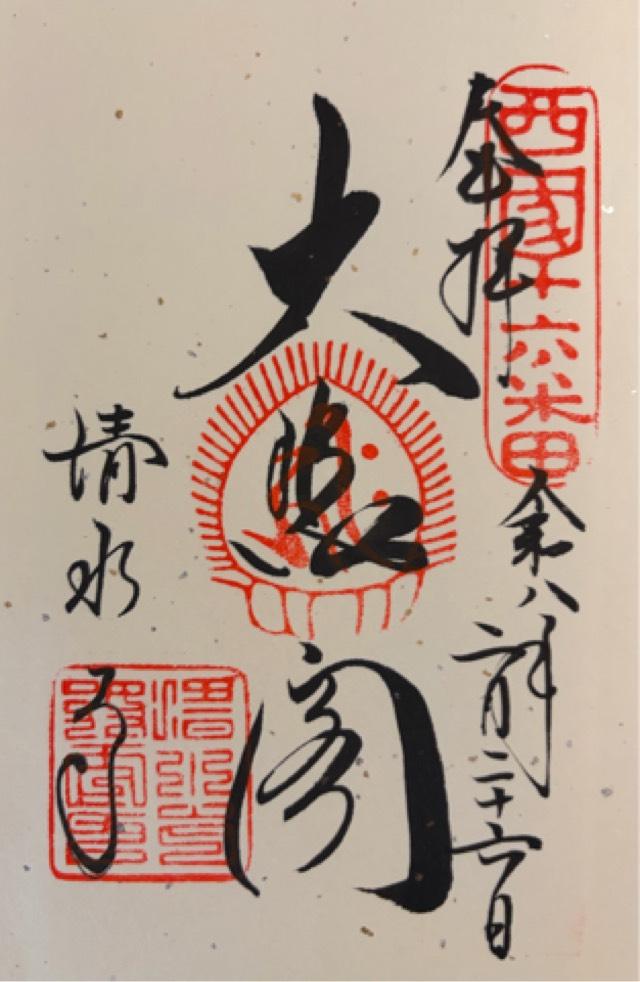 奉拝
西國十六番
令和八年
二月二十六日
大悲閣
清水寺